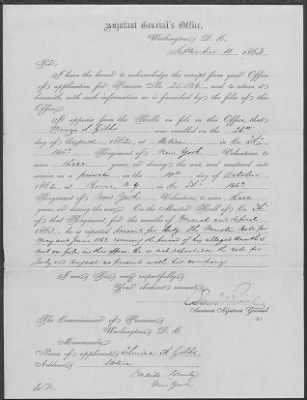 Adjutant General's Office,
Washington, D. C.
September 186
Sir:
I have the honor to acknowledge the receipt from your Office
of application for Pension No. and to return it
herewith, with such information as is furnished by the files of this
Office.
It appears from the Rolls on file in this Office, that
S Gibbs was enrolled on the
day of 1862, at in Co.
146th Regiment of New York Volunteers, to
serve three years, or during the war, and mustered into
service as a private on the 10th day of October
1862, at Rome, N. Y., in Co. 146th
Regiment of New York Volunteers, to serve three
years, or during the war. On the Muster Roll of Co.
of that Regiment, for the months of March and April
1863, he is reported present for duty The Muster Rolls for
May and June 1863 covering the period of his alleged death is
not on file in this office. He is not on Roll for
July and August as present with his company
I am, Sir, very respectfully,
Your obedient servant,
Assistant Adjutant General.
The Commissioner of Pensions,
Washington, D. C.
Memoranda.
Name of applicant, A Gibbs
Address, Utica
Oneida County
New York